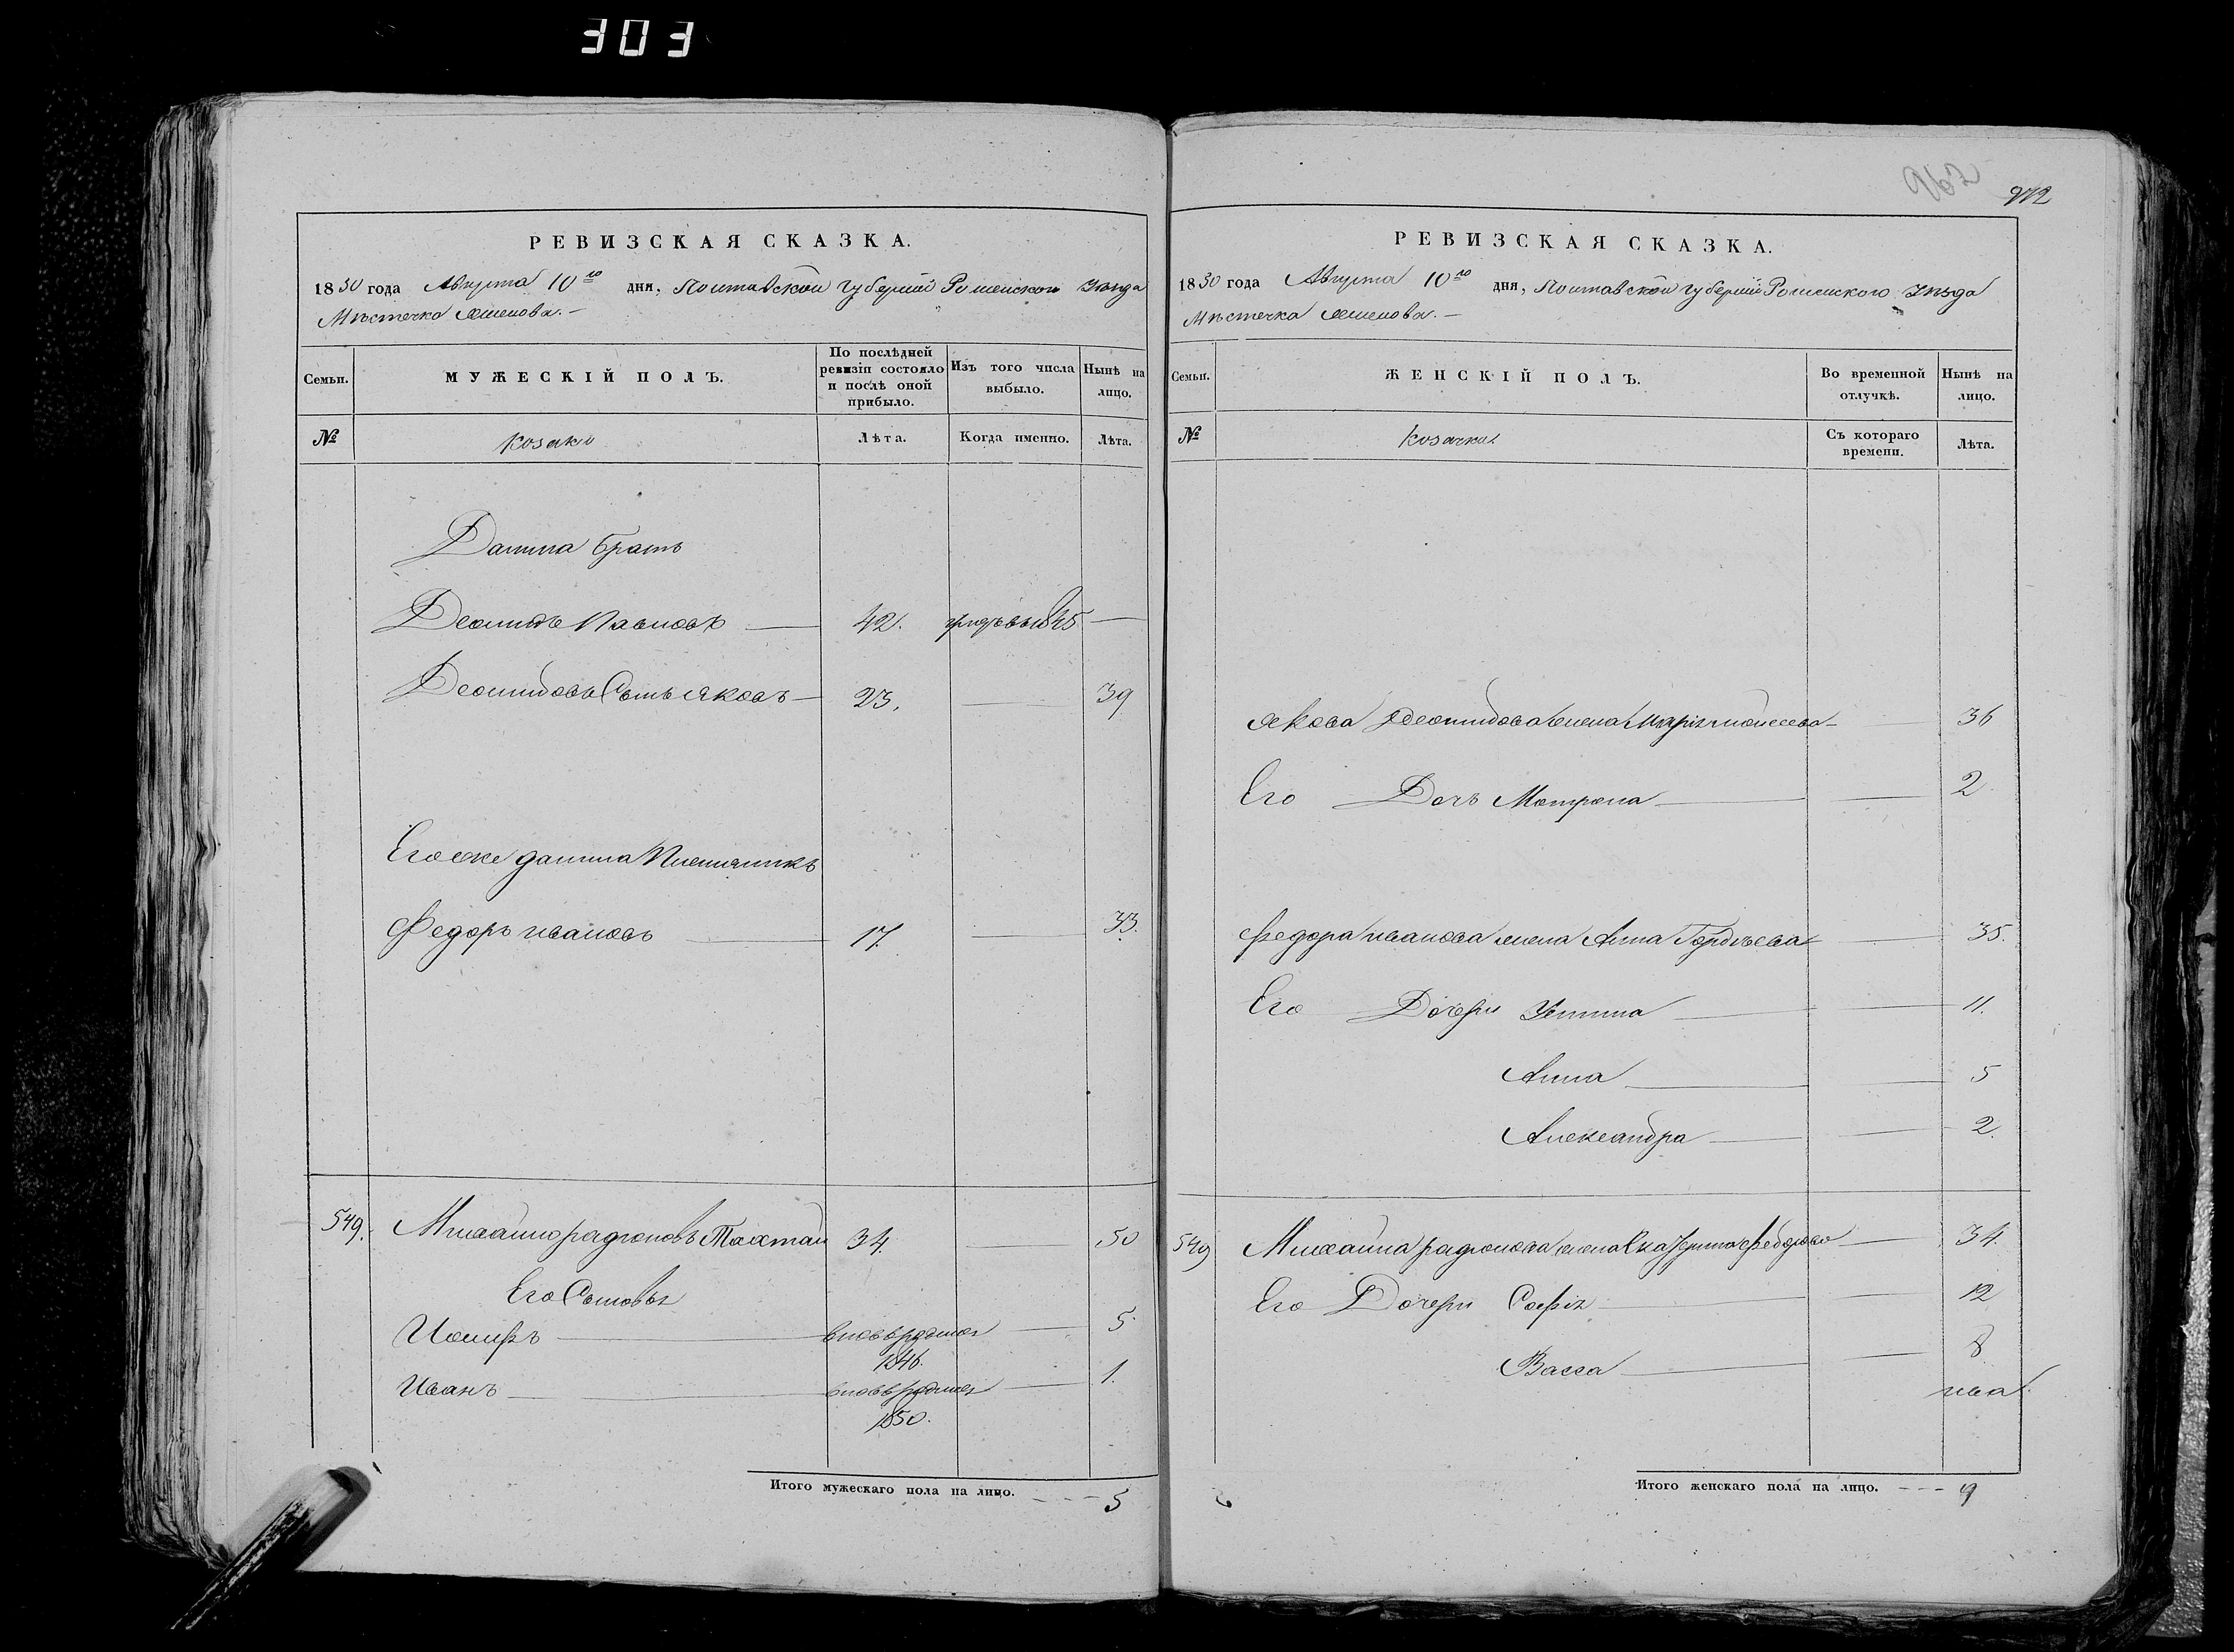 303
962
972
РЕВИЗСКАЯ СКАЗКА.
1850 года Августа 10го дня, Полтавской губернии Роменского Уѣзда
Мѣстечка
Семьи.
МУЖЕСКІЙ ПОЛЪ.
По послѣдней ревизіи состояло и послѣ оной прибыло.
Изъ того числа выбыло.
Нынѣ на лицо.
№ козаки Лѣта. Когда именно. Лѣта.
Данила братъ
Леонидъ Павловъ 42. 1845
Леонидовъ Сынъ Яковъ 23. 39
Его же данила Племянникъ
Федоръ ивановъ 17. 33.
549. Михайло радіоновъ 34. 50
Его Сыновья
Иосифъ вновь рожденъ 5.
1846.
Иванъ вновь рожденъ 1.
1850.
Итого мужескаго пола на лицо. 5
РЕВИЗСКАЯ СКАЗКА.
1850 года Августа 10го дня, Полтавской губернии Роменского Уѣзда
Мѣстечка
Семьи.
ЖЕНСКІЙ ПОЛЪ.
Во временной отлучкѣ.
Нынѣ на лицо.
№ козачки Съ котораго времени. Лѣта.
Якова Леонидова жена Марія моисеева 36
Его Дочь Мотрона 2
Федора иванова жена Анна Гордѣева 35.
Его Дочери Устина 11.
Анна 5
Александра 2.
549 Михайла радіонова жена Федорова 34.
Его Дочери Софія 12
Васса 8
Итого женскаго пола на лицо. 9